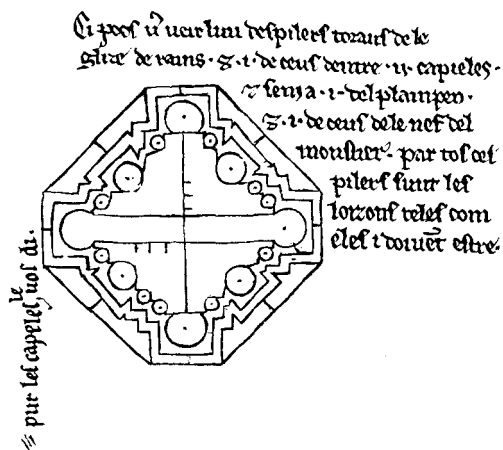 Ci poes vo veir lun des pilers toraus de le
glize de rains · ⁊ · i · de ceus dentre · ij · capieles ·
⁊ sen i a · i · del plain pen ·
⁊ · i · de ceus de le nef del
moustier · par tos ces
pilers sunt les
loizons teles com
eles i doiuēt estre ·
pur les capeles, uos di ·
le